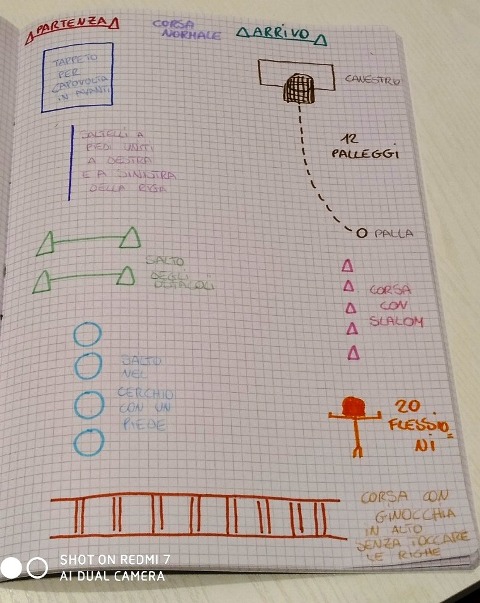 PARTENZA
CORSA
NORMALE
ARRIVO
TAPPETO
PER
CAPOVOLTA
IN AVANTI
CANESTRO
SALTELLI A
PIEDI UNITI
A DESTRA
E A SINISTRA
DELLA RIGA
12
PALLEGGI
PALLA
SALTO
DEGLI
OSTACOLI
CORSA
CON
SLALOM
SALTO
NEL
CERCHIO
CON UN
PIEDE
20
FLESSIO=
NI
CORSA CON
GINOCCHIA
IN ALTO
SENZA TOCCARE
LE RIGHE
SHOT ON REDMI 7
AI DUAL CAMERA